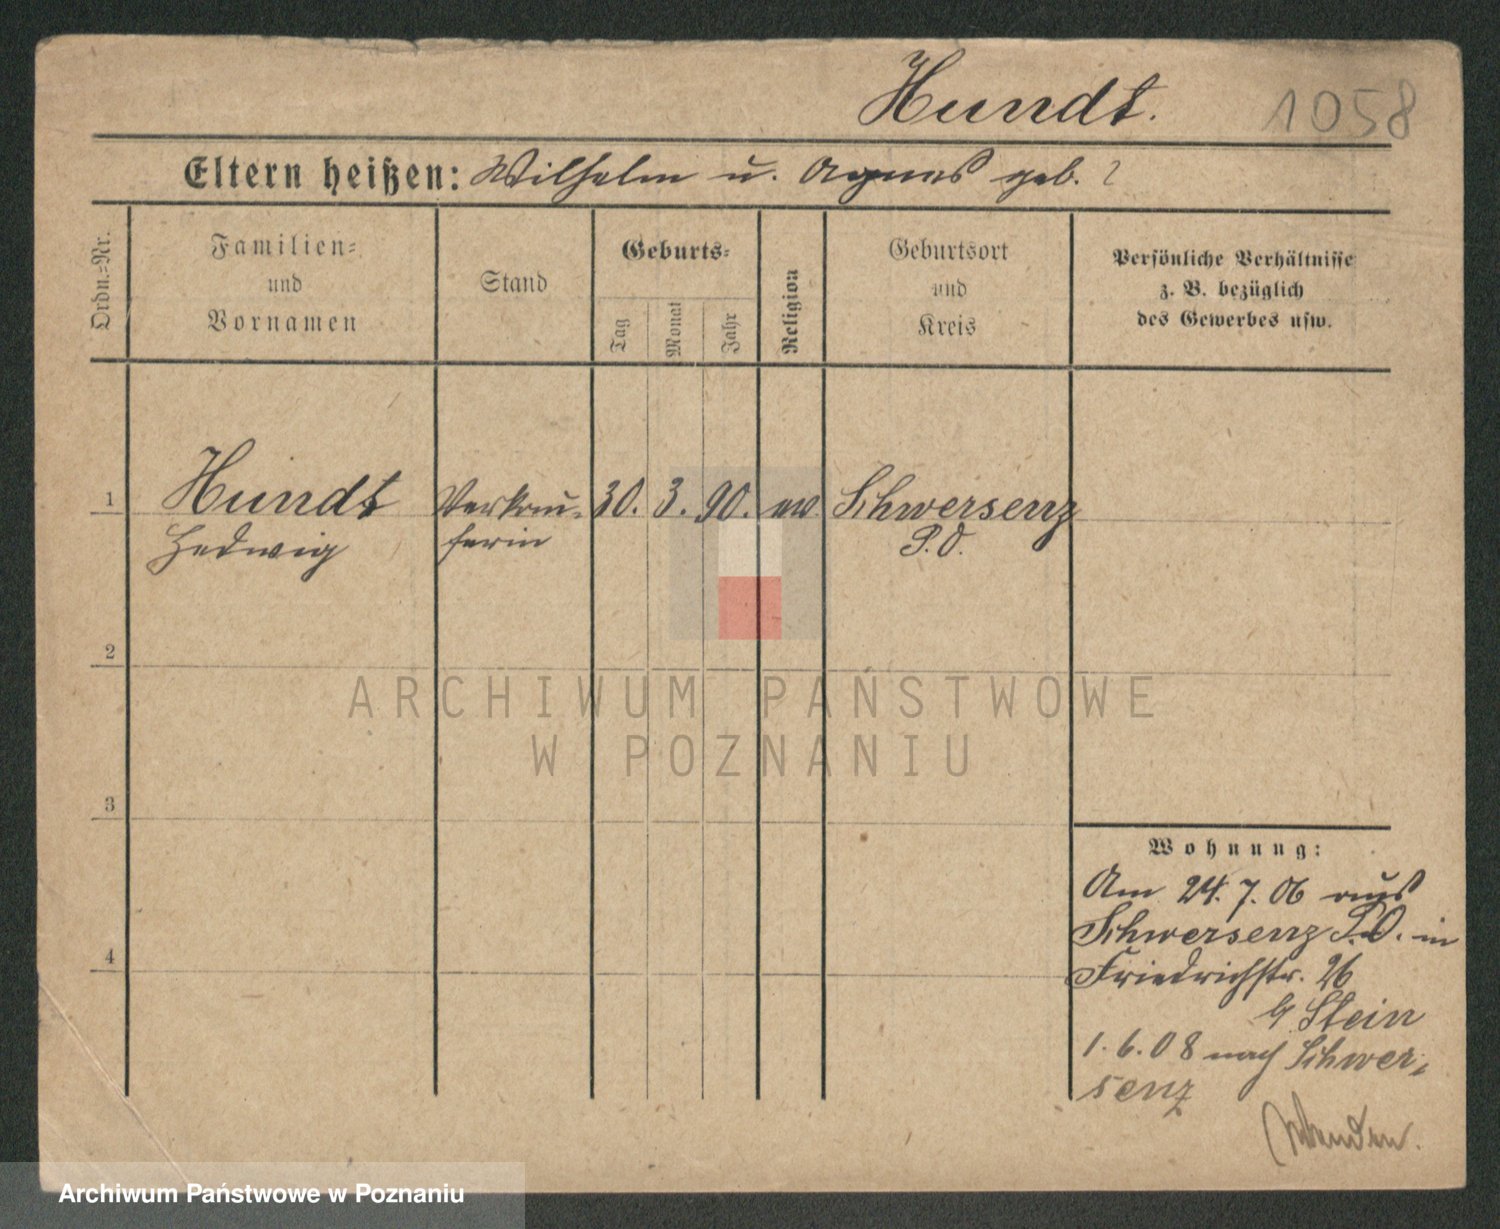 Hundt. 1058
Eltern heißen: Wilhelm u. Agnes geb. ?
Ordn.-Nr.
Familien-
und
Vornamen
Stand
Geburts-
Tag
Monat
Jahr
Religion
Geburtsort
und
Kreis
Persönliche Verhältnisse
z. B. bezüglich
des Gewerbes usw.
1 Hundt Verkäu- 30. 3. 90. ev Schwersenz
Hedwig ferin P. O.
2
3
4
ARCHIWUM PAŃSTWOWE
W POZNANIU
Wohnung:
Am 24. 7. 06 aus
Schwersenz P.O. in
Friedrichstr. 26
b/ Stein
1. 6. 08 nach Schwer-
senz
Archiwum Państwowe w Poznaniu